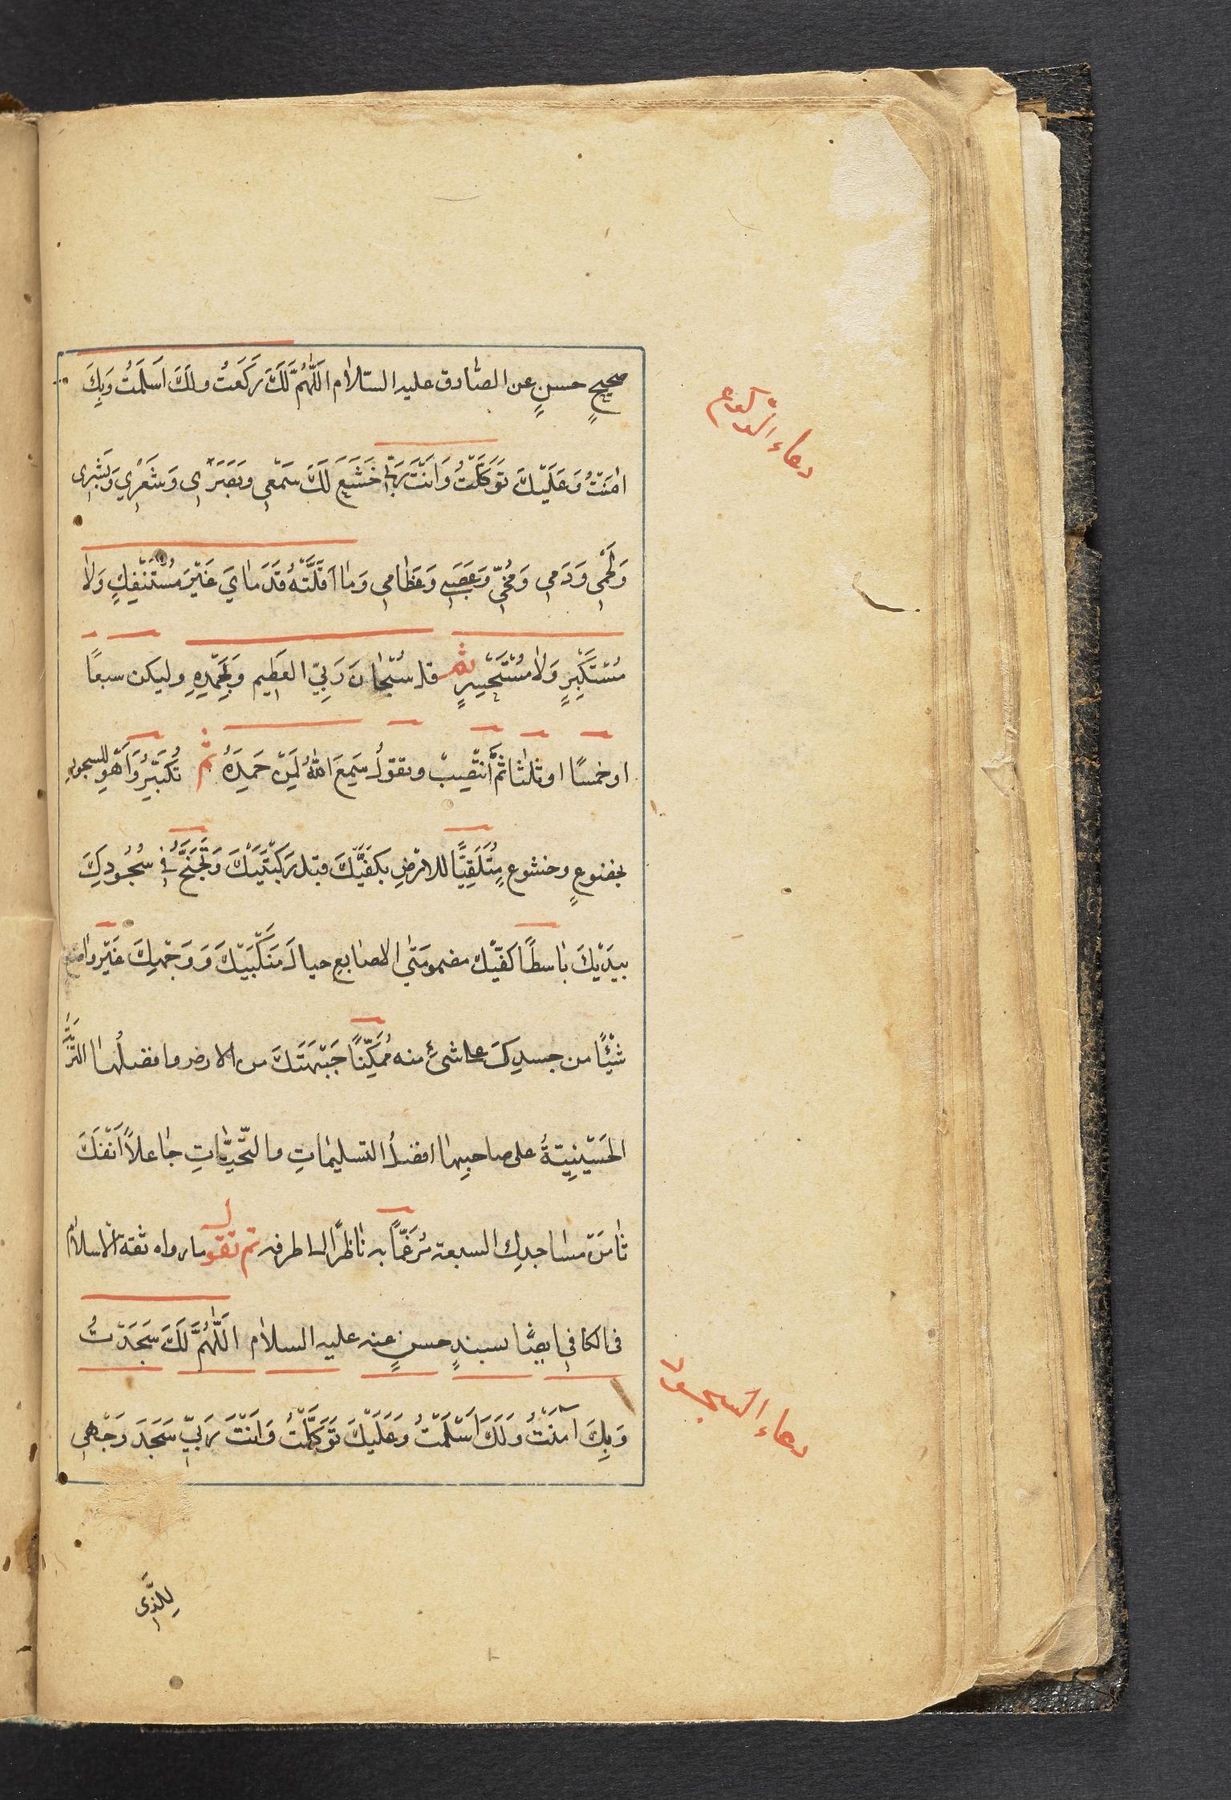 صحيحٍ حسنٍ عن الصّادق عليه السّلام اَللّٰهُمَّ لَكَ رَكَعْتُ ولَكَ اَسْلَمْتُ وَبِكَ
دعاء الركوع
اٰمَنْتُ وَعَلَيْكَ تَوَكَّلْتُ وَاَنْتَ رَبّي خَشَعَ لَكَ سَمْعي وَبَصَرى وَشَعْري وَبَشَرى
وَلَحْمي وَدَمي وَمُخّي وَعَصَبي وَعِظٰامي وَمٰا اَقَلَّتْهُ قَدَمٰايَ غَيْرَ مُسْتَنْكِفٍ وَلٰا
مُسْتَكْبِرٍ وَلٰا مُسْتَحْسِرٍ ثم قل سُبْحٰانَ رَبِّيَ العَظيمِ وَبِحَمْدِهِ وليكن سبعًا
او خمسًا او ثلثا ثمّ انْتَصِبْ وتقولُ سَمِعَ اللهُ لِمَنْ حَمِدَهُ ثم تُكَبِّرُ وَاَهْوِ للسجود
بخضوعٍ وخشوعٍ مُتَلَقِّيًا للارْضِ بكفَّيْكَ قبل رُكْبَتَيْكَ وَتَجَنَّحْ في سُجُودِكَ
بيدَيْكَ بٰاسِطًا كفَّيْك مضمومتَي الاصٰابعِ حيالَ مَنْكِبَيْكَ وَوَجْهِكَ غَيْر واضعٍ
شَيْئًا من جسدِكَ على شئٍ منه مُمَكِّنًا جَبْهَتَكَ من الارض وافضلُهٰا التُّرْبَةُ
الحُسَيْنِيّةُ على صاحبِها افضلُ التسليمٰاتِ والتّحيّٰاتِ جٰاعلاً اَنْفَكَ
ثٰامِنَ مسٰاجدِك السبعة مُرْغِمًا به نٰاظرًا الى طرفه ثم تقول ما رواه ثقة الاسلام
فى الكافي ايضًا بسندٍ حسنٍ عنه عليه السلام اَللّٰهُمَّ لَكَ سَجَدْتُ
دعاء السجود
وَبِكَ اٰمَنْتُ وَلَكَ اَسْلَمْتُ وَعَلَيْكَ تَوَكَّلْتُ وَاَنْتَ رَبّي سَجَدَ وَجْهي
لِلَّذى